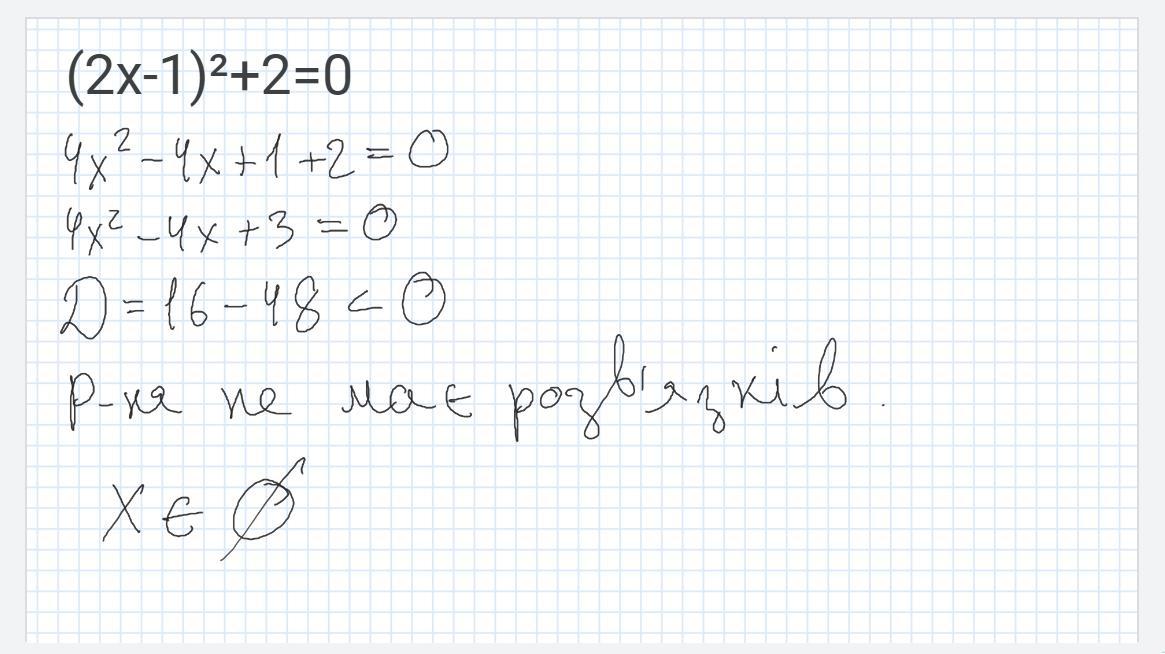 (2x-1)²+2=0
4x² - 4x + 1 + 2 = 0
4x² - 4x + 3 = 0
D = 16 - 48 < 0
р-ня не має розв'язків.
x ∈ ∅